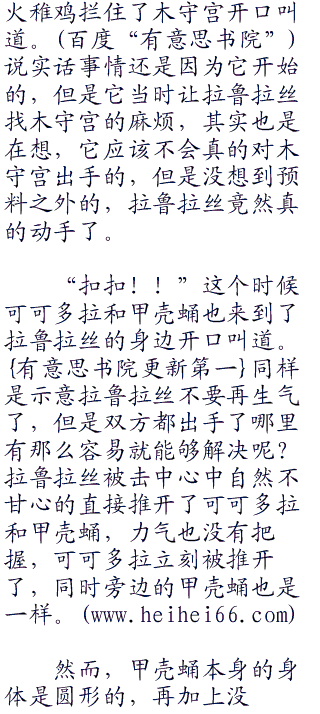 火稚鸡拦住了木守宫开口叫
道。(百度“有意思书院”)
说实话事情还是因为它开始
的，但是它当时让拉鲁拉丝
找木守宫的麻烦，其实也是
在想，它应该不会真的对木
守宫出手的，但是没想到预
料之外的，拉鲁拉丝竟然真
的动手了。
“扣扣！！”这个时候
可可多拉和甲壳蛹也来到了
拉鲁拉丝的身边开口叫道。
{有意思书院更新第一}同样
是示意拉鲁拉丝不要再生气
了，但是双方都出手了哪里
有那么容易就能够解决呢？
拉鲁拉丝被击中心中自然不
甘心的直接推开了可可多拉
和甲壳蛹，力气也没有把
握，可可多拉立刻被推开
了，同时旁边的甲壳蛹也是
一样。(www.heihei66.com)
然而，甲壳蛹本身的身
体是圆形的，再加上没